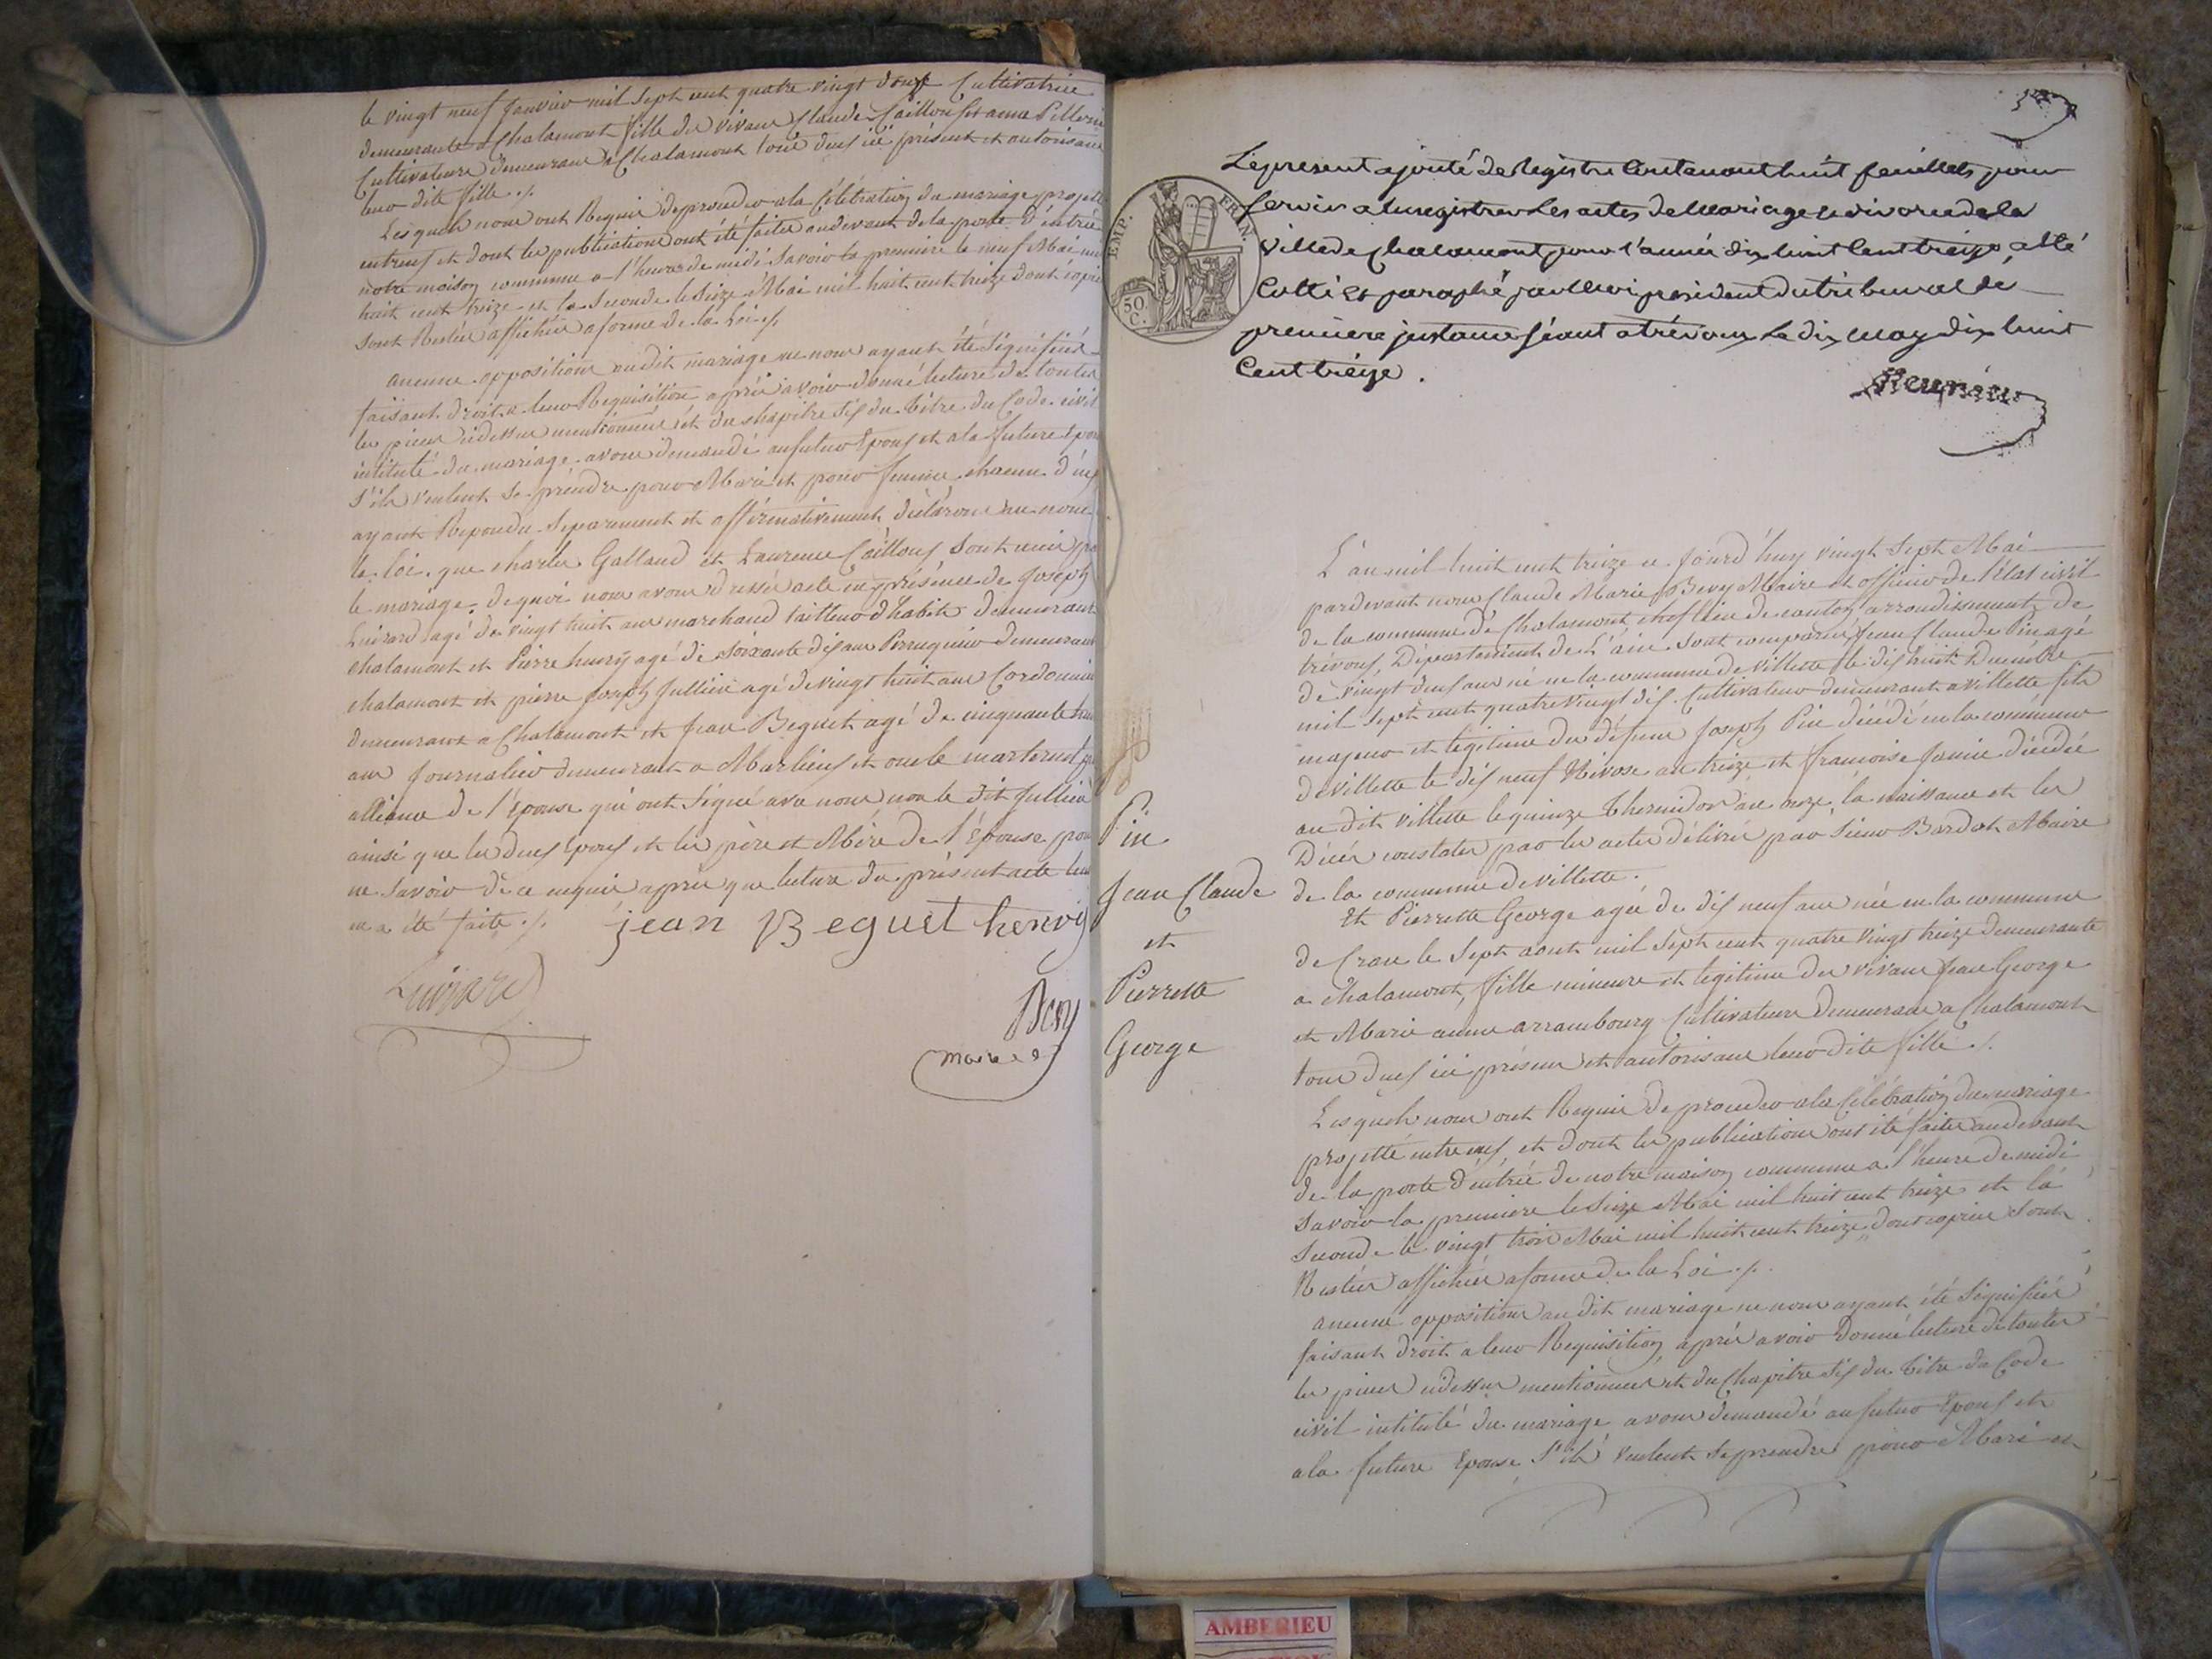 le vingt neuf Janvier mil sept cent quatre vingt douze Cultivatrice
demeurante a Chalamont fille des vivans Claude Caillou et anne
Cultivateurs demeurans a Chalamont tous deux ici présent et autorisans
leur dite fille ./.
Lesquels nous ont Requis de proceder a la Célébration du mariage projetté
entreux et dont les publications ont été faites audevant de la porte d'entrée
notre maison commune a l'heure de midi Savoir la premiere le neuf Mai mil
huit cent treize et la Seconde le Seize Mai mil huit cent treize dont copies
sont Restées affichées a forme de la Loi ./.
aucune opposition au dit mariage ne nous ayant été Signifiée
faisant droit a leur Requisition après avoir donné lecture de toutes
les pieces cidessus mentionnées et du chapitre six du titre du Code civil
intitulé du mariage avons demandé aufutur Epoux et ala future Epouse
S'ils veulent se prendre pour Mari et pour femme chacun d'eux
ayant Repondu Separement et affirmativement déclarons au nom
la loi que charles Galland et Laurence Caillou sont unis par
le mariage de quoi nous avons dressé acte en présence de Joseph
Luizard agé de vingt huit ans marchand tailleur d'habits demeurant
chalamont et Pierre henry agé de soixante dix ans Perruquier demeurant
chalamont et pierre Joseph Jullien agé de vingt huit ans Cordonnier
demeurant a Chalamont et Jean Beguet agé de cinquante
ans Journalier demeurant a Marlieux et oncle maternel
alliance de l'épouse qui ont signé avec nous non le dit Jullien
ainsi que les deux Epoux et les père et Mère de l'Epouse pour
ne savoir de ce enquis apprès que lecture du présent acte leur
en a été faite ./. jean Beguet henry
Luizard
Bery
maire
Le present ajouté de Registre Contenant huit feuillets pour
servir a Enregistrer Les actes de Mariage et divorce de la
ville de chalamont pour l'année dix huit Cent treize a été
Cotté et paraphé par Nous president du tribunal de
premiere jnstance séant a trévoux Le dix may dix huit
Cent treize.
EMP. FRAN.
50 C.
L'an mil huit cent treize ce jourd'huy vingt Sept Mai
pardevant nous Claude Marie Bery Maire et officier de l'état civil
de la commune de Chalamont chef lieu de canton arrondissement de
trévoux, Département de L'ain sont comparus Jean Claude Pin agé
de vingt deux ans né en la commune de Villette le dix huit Decembre
mil Sept cent quatre vingt dix Cultivateur demeurant a villette fils
majeur et légitime du défunt Joseph Pin décédé en la commune
de villette le dix neuf Nivose an treize et francoise Janin décédée
au dit villette le quinze thermidor an onze, la naissance et les
Décès constatés par les actes délivrés par Sieur Bardot Maire
de la commune de Villette.
Et Pierrette George agée de dix neuf ans née en la commune
de Crans le Sept aout mil Sept cent quatre vingt treize demeurante
a chalamont, fille mineure et legitime des vivans Jean George
et Marie anne arrambourg Cultivateurs Demeurans a Chalamont
tous deux ici présens et autorisans leur dite fille ./.
Lesquels nous ont Requis de proceder ala Célébration du mariage
projetté entreux, et dont les publications ont été faites audevant
de la porte d'entrée de notre maison commune a l'heure de midi
Savoir la premiere le Seize Mai mil huit cent treize et la
Seconde le vingt trois Mai mil huit cent treize dont copies sont
Restées affichées a forme de la Loi ./.
aucune opposition au dit mariage ne nous ayant été Signifiée
faisant droit a leur Requisition après avoir donné lecture de toutes
les pieces cidessus mentionnées et du Chapitre six du titre du Code
civil intitulé du mariage avons demandé aufutur Epoux et
ala future Epouse S'ils veulent se prendre pour Mari et
Pin
Jean Claude
et
Pierrette
George
AMBERIEU